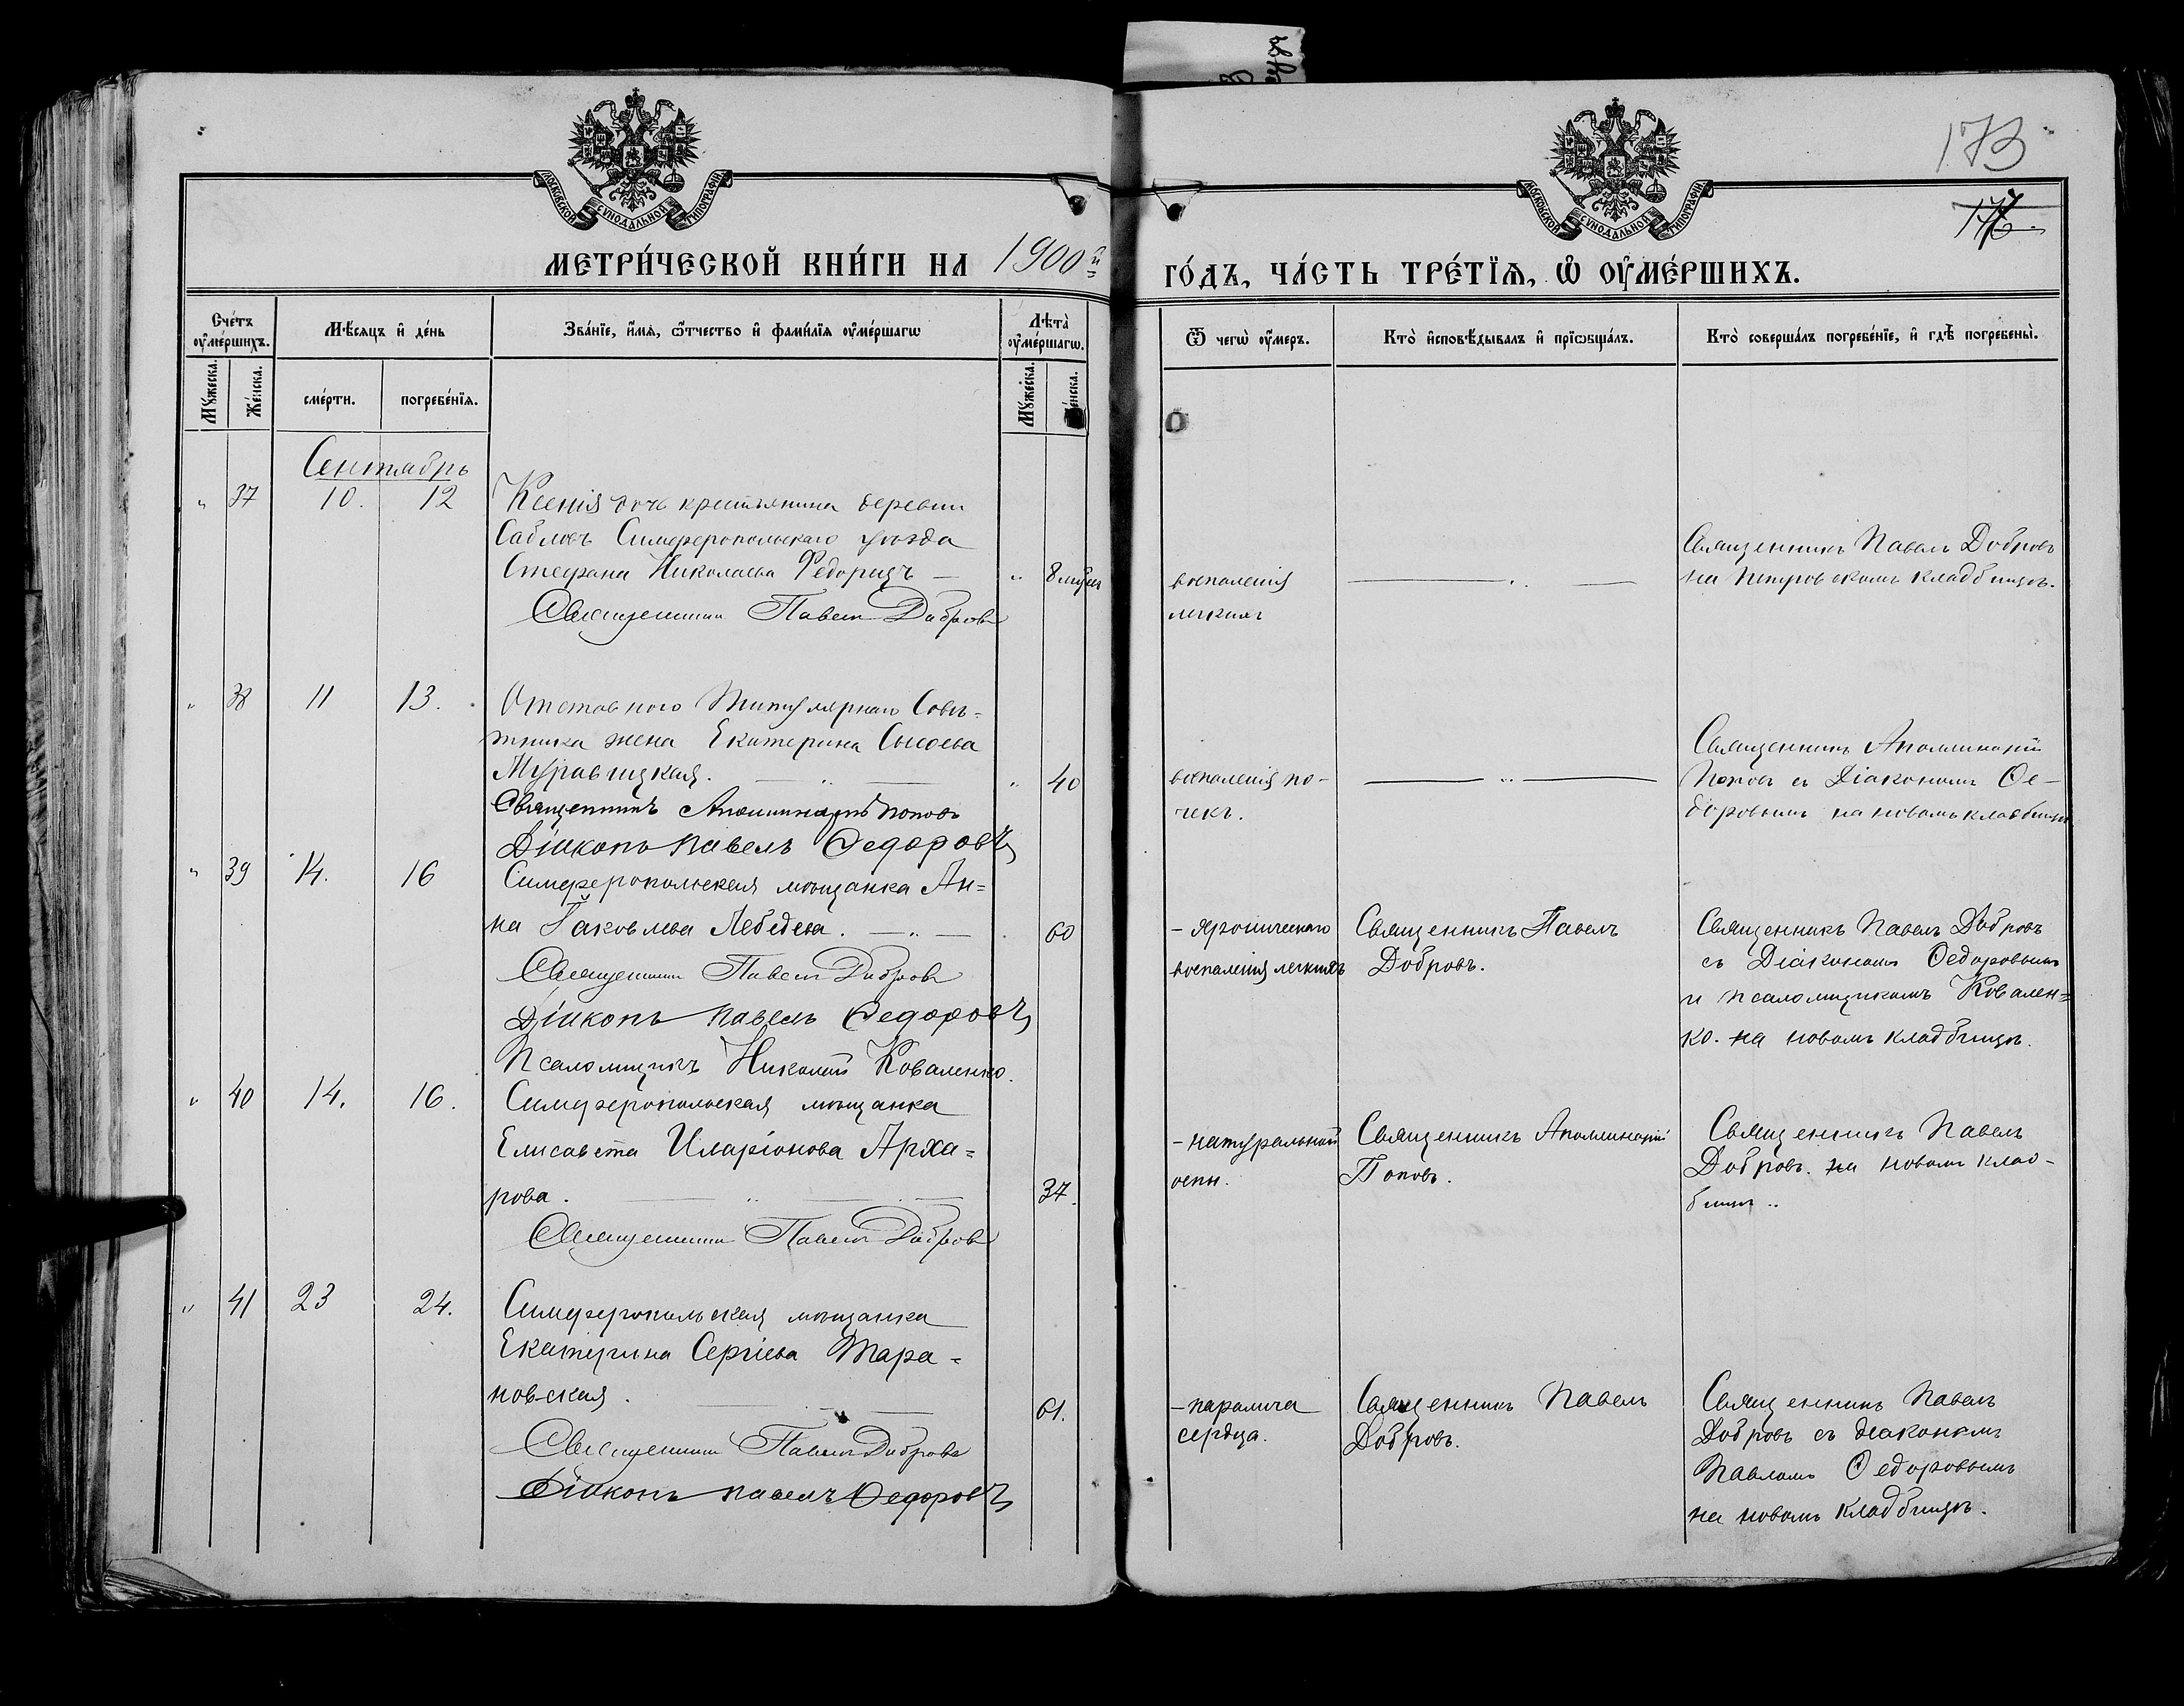 173
176
МОСКОВСКОЙ СѴНОДАЛЬНОЙ ТИПОГРАФІИ
МОСКОВСКОЙ СѴНОДАЛЬНОЙ ТИПОГРАФІИ
МЕТРИ́ЧЕСКОЙ КНИ́ГИ НА 1900й ГО́ДЪ, ЧА́СТЬ ТРЕ́ТІѦ, Ѡ҆ ОУ҆МЕ́РШИХЪ.
Сче́тъ оу҆ме́ршихъ.
Мѣ́сяцъ и҆ де́нь
Зва́нїе, и҆́мѧ, ѻ҆́тчество и҆ фами́лїѧ оу҆ме́ршагѡ
Лѣта̀ оу҆ме́ршагѡ.
Ѿ чегѡ̀ оу҆́меръ.
Кто̀ и҆сповѣ́дывалъ и҆ прїѡбща́лъ.
Кто̀ соверша́лъ погребе́нїе, и҆ гдѣ̀ погребены̀.
Мꙋ́жеска.
Же́нска.
сме́рти.
погребе́нїѧ.
Мꙋ́жеска.
Же́нска.
Сентябрь
" 37 10. 12
Ксенія дочь крестьянина деревни
Сабловъ Симферопольскаго уѣзда
Стефана Николаева Ѳедорицъ —
" 8 мѣсяц
Священникъ Павелъ Добровъ
воспаленія
легкихъ
— " —
Священникъ Павелъ Добровъ
на Петровскомъ кладбищѣ.
" 38 11 13.
Отставного Титулярнаго Совѣ=
тника жена Екатерина Сысоева
Муравицкая. — " —
" 40
Священникъ Аполлинарій Поповъ
Діаконъ Павелъ Ѳедоровъ
воспаленія по-
чекъ.
— " —
Священникъ Аполлинарій
Поповъ съ Діакономъ Ѳе-
доровымъ на новомъ кладбищѣ
" 39 14. 16
Симферопольская мѣщанка Ан=
на Іаковлева Лебедева. — " —
60
Священникъ Павелъ Добровъ
Діаконъ Павелъ Ѳедоровъ
Псаломщикъ Николай Коваленко.
- хроническаго
воспаленія легкихъ
Священникъ Павелъ
Добровъ.
Священникъ Павелъ Добровъ
съ Діакономъ Ѳедоровымъ
и псаломщикомъ Ковален=
ко. на новомъ кладбищѣ.
" 40 14. 16.
Симферопольская мѣщанка
Елисавета Иларіонова Арха=
рова. — " —
37.
Священникъ Павелъ Добровъ
- натуральной
оспы.
Священникъ Аполлинарій
Поповъ.
Священникъ Павелъ
Добровъ. на новомъ клад-
бищѣ ..
" 41 23 24.
Симферопольская мѣщанка
Екатерина Сергіева Тара=
новская.
61.
Священникъ Павелъ Добровъ
Діаконъ Павелъ Ѳедоровъ
- паралича
сердца.
Священникъ Павелъ
Добровъ.
Священникъ Павелъ
Добровъ съ діакономъ
Павломъ Ѳедоровымъ
на новомъ кладбищѣ.